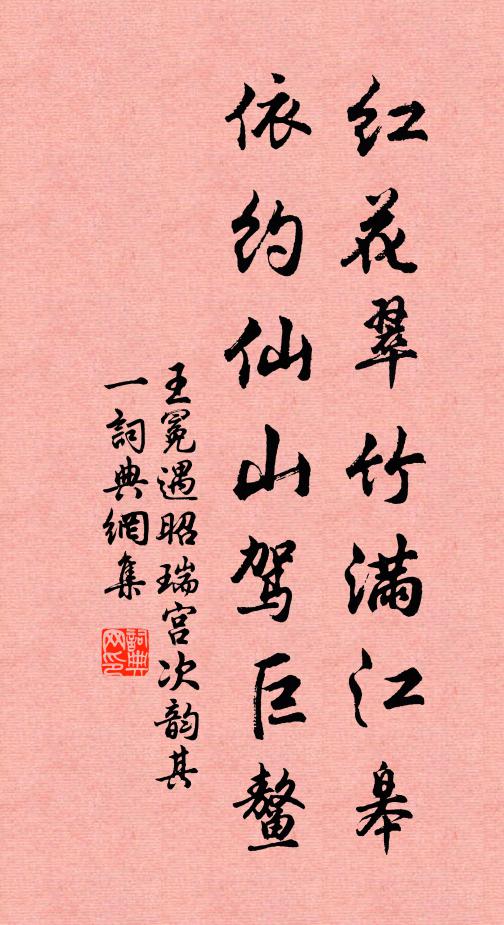 红花翠竹满江皋
依约仙山驾巨鳌
王冕遇昭瑞宫次韵其
一词典網集
詞典网印